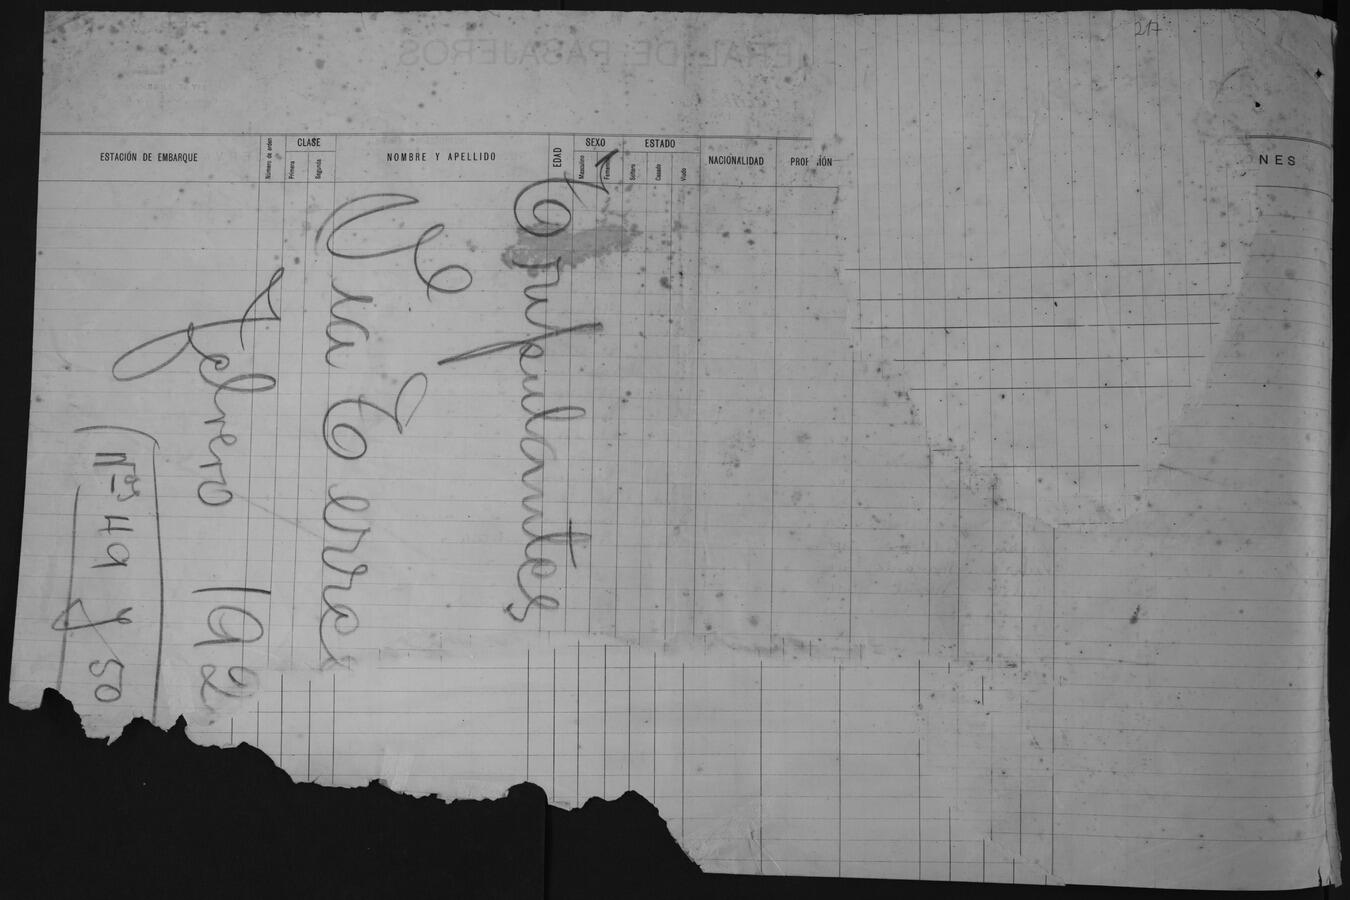 217
ERAL DE PASAJEROS
ESTACIÓN DE EMBARQUE
Número de orden
CLASE
Primera
Segunda
NOMBRE Y APELLIDO
EDAD
SEXO
Masculino
Feme
ESTADO
Soltero
Casado
Viudo
NACIONALIDAD
PROF IÓN
NES
Tripulantes
Via Terres
Febrero 192
(Nos 49 y 50